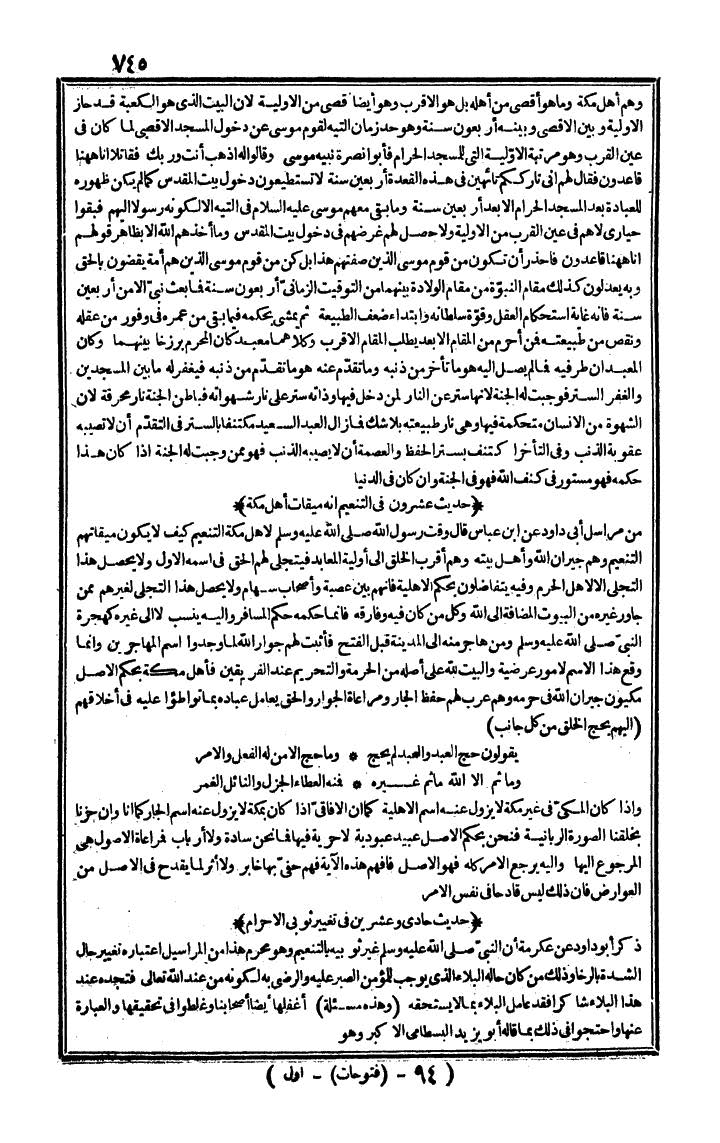 ٧٤٥
وهم أهل مكة وما هو أقصى من أهله بل هو الاقرب وهو أيضا قصى من الاولية لان البيت الذى هو الكعبة قد حاز
الاولية و بين الاقصى و بينه أر بعون سنة وهو حد زمان التيه لقوم موسى عن دخول المسجد الاقصى لما كان فى
عين القرب وهو مرتبة الاوّلية التى للمسجد الحرام فأبوا نصرة نبيه موسى وقالوا له اذهب أنت وربك فقاتلا اناههنا
قاعدون فقال لهم انى تارككم تائهين فى هذه القعدة أر بعين سنة لا تستطيعون دخول بيت المقدس كمالم يكن ظهوره
للعبادة بعد المسجد الحرام الا بعد أر بعين سنة وما بقى معهم موسى عليه السلام فى التيه الا لكونه رسولا اليهم فبقوا
حيارى لاهم فى عين القرب من الاولية ولا حصل لهم غرضهم فى دخول بيت المقدس وما أخذهم الله الا بظاهر قولهم
اناههنا قاعدون فاحذر أن تكون من قوم موسى الذين صفتهم هذا بل كن من قوم موسى الذين هم أمة يقضون بالحق
وبه يعدلون كذلك مقام النبوّة من مقام الولادة بينهما من التوقيت الزمانى أر بعون سنة فما بعث نبىّ الا من أر بعين
سنة فانه غاية استحكام العقل وقوّة سلطانه وابتداء ضعف الطبيعة ثم يمشى بحكمه فيما بقى من عمره فى وفور من عقله
ونقص من طبيعته فمن أحرم من المقام الابعد يطلب المقام الاقرب وكلاهما معبد كان المحرم برزخا بينهما وكان
المعبدان طرفيه فالم يصل اليه هو ما تأخر من ذنبه وما تقدّم عنه هو ما تقدّم من ذنبه فيغفر له ما بين المسجدين
والغفر الستر فوجبت له الجنة لانها ستر عن النار لمن دخل فيها وذاته ستر على نار شهواته فباطن الجنة نار محرقة لان
الشهوة من الانسان متحكمة فيها وهى نار طبيعته بلاشك فمازال العبد السعيد مكتنفا بالستر فى التقدّم أن لا تصيبه
عقوبة الذنب وفى التأخر اكتنف بستر الحفظ والعصمة أن لا يصيبه الذنب فهو ممن وجبت له الجنة اذا كان هذا
حكمه فهو مستور فى كنف الله فهو فى الجنة وان كان فى الدنيا
﴿حديث عشرون فى التنعيم انه ميقات أهل مكة﴾
من مراسل أبى داود عن ابن عباس قال وقت رسول الله صلى الله عليه وسلم لاهل مكة التنعيم كيف لا يكون ميقاتهم
التنعيم وهم جيران الله وأهل بيته وهم أقرب الخلق الى أولية المعابد فيتجلى لهم الحق فى اسمه الاول ولا يحصل هذا
التجلى الا لاهل الحرم وفيه يتفاضلون بحكم الاهلية فانهم بين عصبة وأصحاب سهام ولا يحصل هذا التجلى لغيرهم ممن
جاور غيره من البيوت المضافة الى الله وكل من كان فيه وفارقه فانما حكمه حكم المسافر واليه ينسب لا الى غيره كهجرة
النبىّ صلى الله عليه وسلم ومن هاجر منه الى المدينة قبل الفتح فأثبت لهم جوار الله لما وجدوا اسم المهاجرين وانما
وقع هذا الاسم لامور عرضية والبيت لله على أصله من الحرمة والتحريم عند الفريقين فأهل مكة بحكم الاصل
مكيون جيران الله فى حرمه وهم عرب لهم حفظ الجار ومراعاة الجوار والحق يعامل عباده بما تواطؤا عليه فى أخلاقهم
(اليهم يحج الخلق من كل جانب)
يقولون حج العبد والعبد لم يحج * وما حج الامن له الفعل والامر
وما ثم الا الله ماثم غيره * فنه العطاء الجزل والنائل الغمر
واذا كان المكىّ فى غير مكة لا يزول عنه اسم الاهلية كما ان الافاقىّ اذا كان بمكة لا يزول عنه اسم الجار كما انا وان حزنا
بخلقنا الصورة الربانية فنحن بحكم الاصل عبيد عبودية لا حرية فيها فما نحن سادة ولا أرباب فمراعاة الاصول هى
المرجوع اليها واليه يرجع الامر كله فهو الاصل فافهم هذه الآية فهم حفىّ بها خابر ولا أثر لما يقدح فى الاصل من
العوارض فان ذلك ليس قادحا فى نفس الامر
﴿حديث حادى وعشرين فى تغيير ثوبى الاحرام﴾
ذكر أبو داود عن عكرمة أن النبىّ صلى الله عليه وسلم غير ثوبيه بالتنعيم وهو محرم هذا من المراسيل اعتباره تغيير حال
الشدة بالرخا وذلك من كان حاله البلاء الذى يوجب للمؤمن الصبر عليه والرضى به لكونه من عند الله تعالى فتجده عند
هذا البلاء شاكرا فقد عامل البلاء بمالا يستحقه (وهذه مسئلة) أغفلها أيضا أصحابنا وغلطوا فى تحقيقها والعبارة
عنها واحتجوا فى ذلك بما قاله أبو يزيد البسطامى الاكبر وهو
( ٩٤ - (فتوحات) - اول )